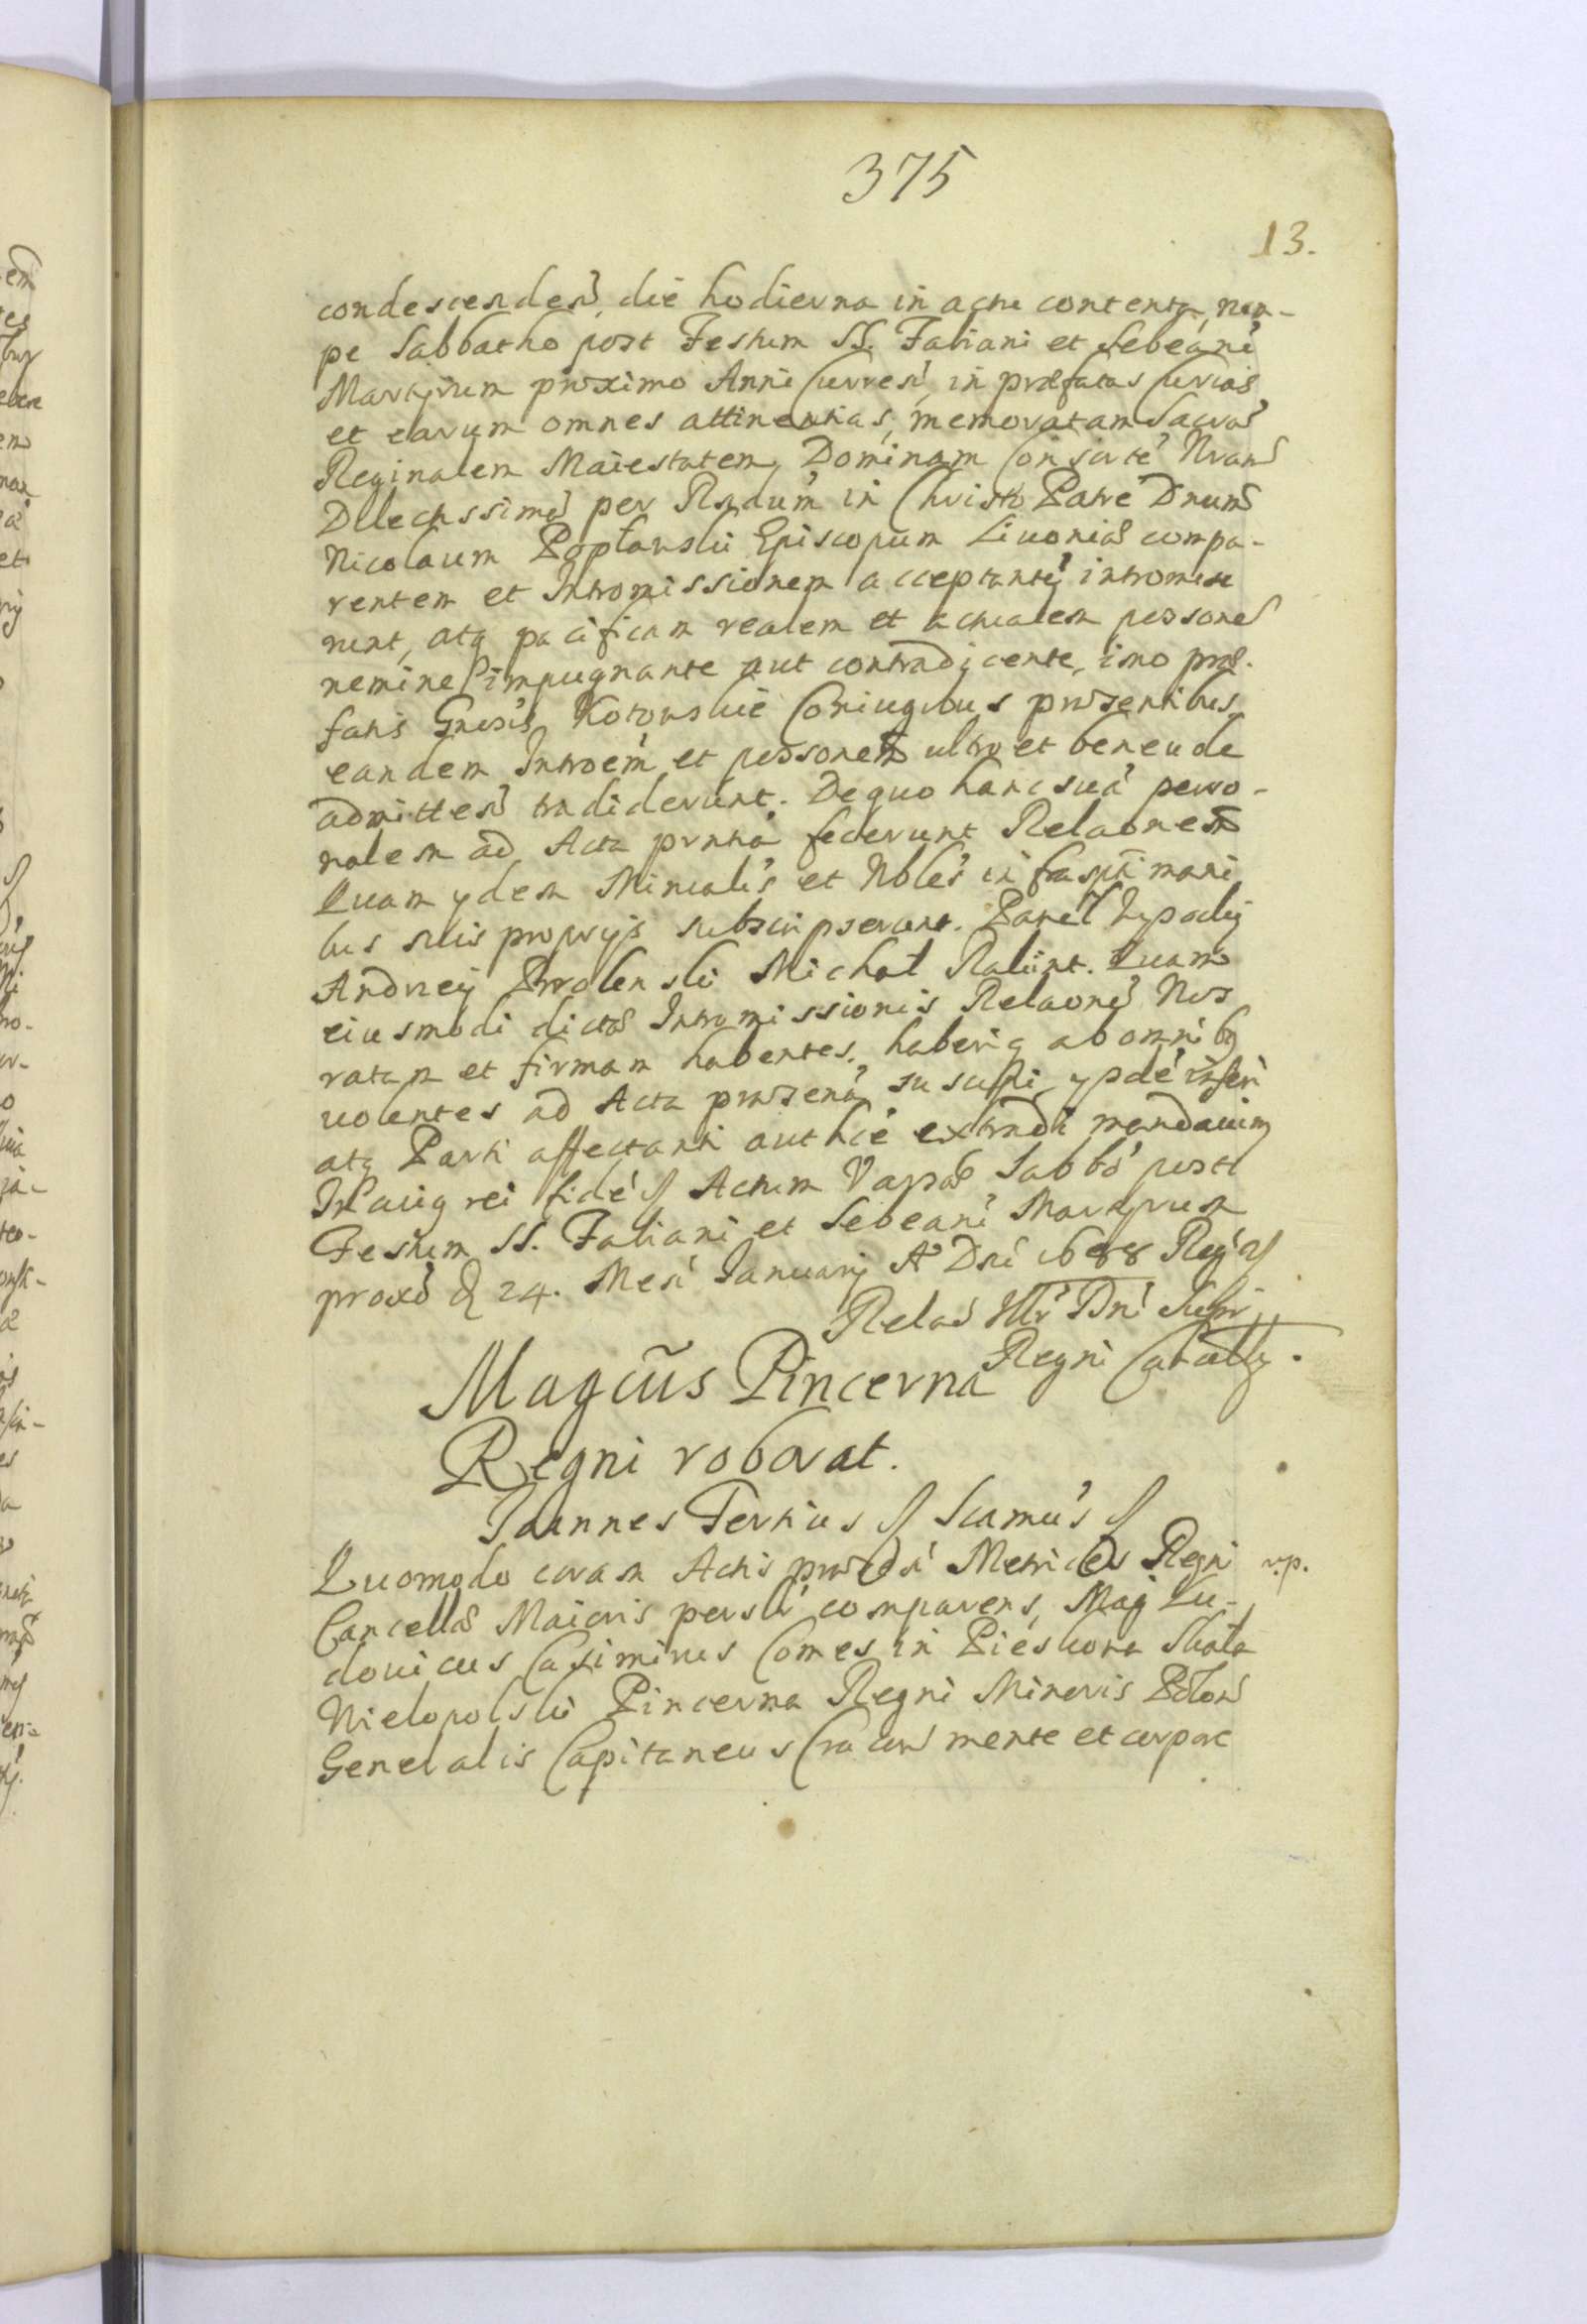 375
13.
condescendeń, die hodierna in actu contenta, nem-
pe Sabbatho post Festum SS. Fabiani et Sebeani
Martyrum proximo Anni Curreń, in præfatas Curias
et earum omnes attinentias, memoratam Sacrã
Reginalem Maiestatem Dominam Consortẽ Nram
Dilectissimã per Rndum in Christo Patrẽ Dnum
Nicolaum Popławski Episcopum Livoniæ compa-
rentem et Intromissionem acceptantẽ intromise
runt, atq pacificam realem et actualem possoneḿ
nemine impugnante aut contradicente, imo præ-
fatis Gnosis Kotowskie Coniugibus præsentibus
eandem Introem et possonem ultro et beneuole
admitteń tradiderunt. De quo hanc suã perso-
nalem ad Acta prntia fecerunt Relaonem
Quam ydem Minealis et Nbles infrascpti mani
bus suis proprys subscripserunt. Paweł
Andrzey Michał Quam
eiusmodi dictæ Intromissionis Relaonẽ Nos
ratam et firmam habentes, haberiq ab omnibq
uolentes ad Acta præsentia suscipi, ysdẽ inseri
atq Parti affectanti authcẽ extradi mandauimq
In cuiq rei fidẽ // Actum Varsaæ Sabbó post
Festum SS. Fabiani et Sebeani Martyrum
proxó d 24. Meń January Aº Dni 1688 Regni //
Relaó Illr̃ Dni Supr
Regni Cancellry.
Magcus Pincerna
Regni roborat.
Joannes Tertius // Scamus //
Quomodo coram Actis præsń Metrices Regni
r.p.
Cancellæ Maioris persłr comparens, Mag Lu-
douicus Casimirus Comes in Pieskowa Skała
Wielopolski Pincerna Regni Minoris Polon
Generalis Capitaneus Cracuń mente et corpore